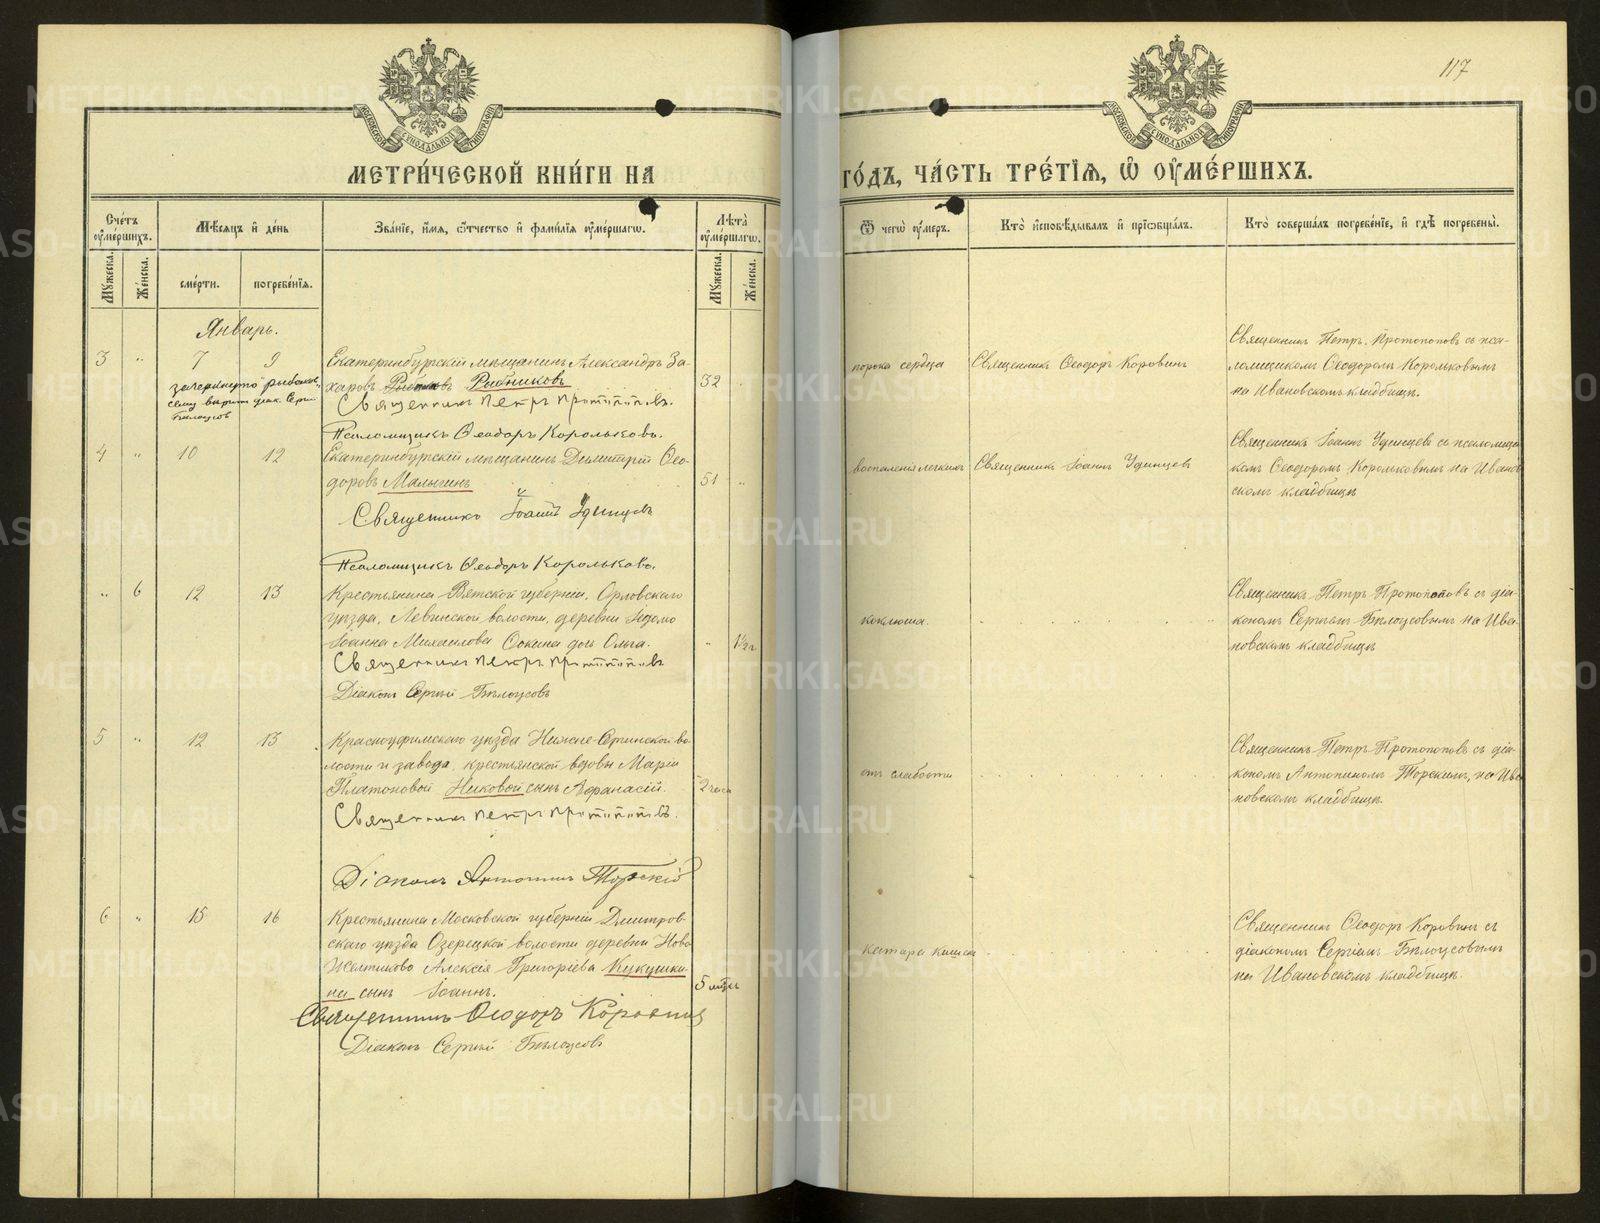 117
МЕТРИ́ЧЕСКОЙ КНИ́ГИ НА
ГО́ДЪ, ЧА́СТЬ ТРЕ́ТЇѦ, Ѿ ОУ҆МЕ́РШИХЪ.
Сче́тъ оу҆ме́ршихъ.
Мѣ́сяцъ и҆ де́нь
Зва́нїе, и҆́мя, ѻ҆́тчество и҆ фами́лїя оу҆ме́ршагѡ.
Лѣ́та оу҆ме́ршагѡ.
Ѿ чегѡ̀ оу҆́меръ.
Кто̀ и҆сповѣ́дывалъ и҆ прїѡбща́лъ.
Кто̀ соверша́лъ погребе́нїе, и҆ гдѣ̀ погребены̀.
Мꙋ́жеска.
Же́нска.
сме́рти.
погребе́нїѧ.
Мꙋ́жеска.
Же́нска.
Январь.
3 " 7 9
Екатеринбургскій мѣщанинъ Александръ За-
харовъ Рыбниковъ
32 "
зачеркнуто
Священникъ Петръ Протопоповъ.
Псаломщикъ Ѳеодоръ Корольковъ.
порока сердца
Священникъ Ѳеодоръ Коровинъ
Священникъ Петръ Протопоповъ съ пса-
ломщикомъ Ѳеодоромъ Корольковымъ
на Ивановскомъ кладбищѣ.
4 " 10 12
Екатеринбургскій мѣщанинъ Димитрій Ѳео-
доровъ Малыгинъ
51 "
Священникъ Іоаннъ Удинцевъ
Псаломщикъ Ѳеодоръ Корольковъ.
воспаленія легкихъ
Священникъ Іоаннъ Удинцев
Священникъ Іоаннъ Удинцевъ съ псаломщи-
комъ Ѳеодоромъ Корольковымъ на Иванов-
скомъ кладбищѣ
" 6 12 13
Крестьянина Вятской губерніи, Орловскаго
уѣзда, Левинской волости, деревни
Іоанна Михаилова дочь Ольга.
" 1½ г
Священникъ Петръ Протопоповъ
Діаконъ Сергій Бѣлоусовъ
коклюша.
Священникъ Петръ Протопоповъ съ діа-
кономъ Сергіемъ Бѣлоусовымъ на Ива-
новскомъ кладбищѣ
5 " 12 13
Красноуфимскаго уѣзда Нижне-Сергинской во-
лости и завода, крестьянской вдовы Маріи
Платоновой Никовой сынъ Аѳанасій.
2 часа
Священникъ Петръ Протопоповъ.
Діаконъ Антонинъ Торскій
отъ слабости
Священникъ Петръ Протопоповъ съ діа-
кономъ Антониномъ Торскимъ, на Ива-
новскомъ кладбищѣ.
6 " 15 16
Крестьянина Московской губерніи Дмитров-
скаго уѣзда Озерецкой волости деревни Ново
Желтиково Алексія Григоріева Кукушки-
на сынъ Іоаннъ.
5 мѣсяц
Священникъ Ѳеодоръ Коровинъ
Діаконъ Сергій Бѣлоусовъ
катара кишекъ
Священникъ Ѳеодоръ Коровинъ съ
діакономъ Сергіемъ Бѣлоусовымъ
на Ивановскомъ кладбищѣ.
METRIKI.GASO-URAL.RU